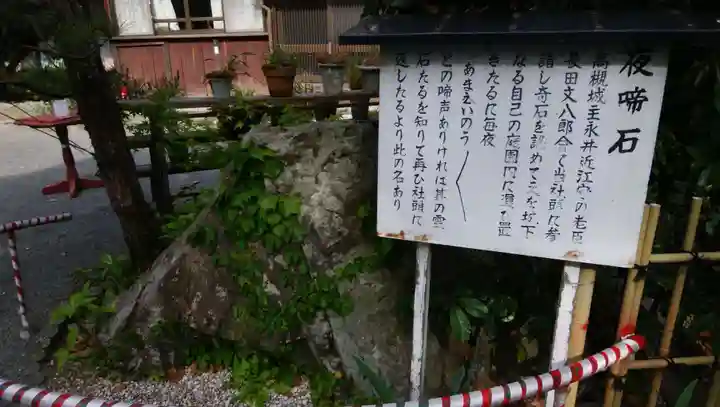 夜啼石
高槻城主永井近江守の老臣
長田文八郎会く当社頭に参
詣し奇石を認めて之を城下
なる自己の庭園内に運び置
きたるに毎夜
あまえいのう
との啼声ありければ其の霊
石たるを知りて再び社頭に
返したるより此の名あり